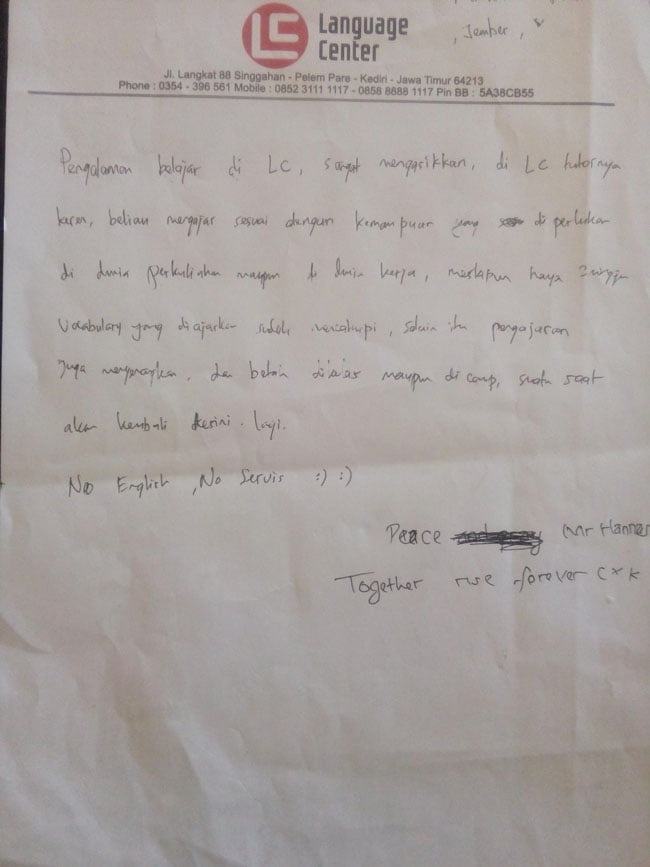 LC Language
Center
, Jember,
Jl. Langkat 88 Singgahan - Pelem Pare - Kediri - Jawa Timur 64213
Phone : 0354 - 396 561 Mobile : 0852 3111 1117 - 0858 8688 1117 Pin BB : 5A38CB55
Pengalaman belajar di LC, sangat mengasikkan, di LC tutornya
keren, beliau mengajar sesuai dengan kemampuan yang di perlukan
di dunia perkuliahan maupun di dunia kerja, meskipun hanya
Vocabulary yang diajarkan sudah mencakupi, selain itu pengajaran
juga menyenangkan, dan maupun di camp, suatu saat
akan kembali kesini lagi.
No English , No Servis :) :)
Peace Mr Hannes
Together rise forever C x K